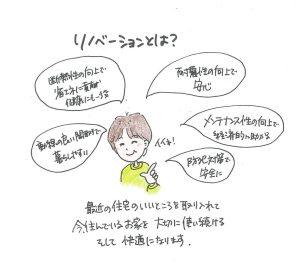 リノベーションとは？
断熱性の向上で
省エネに貢献
健康にも一役
耐震性の向上で
安心
動線の良い間取で
暮らしやすい
イイネ！
メンテナンス性の向上で
経済的にも助かる
防犯対策で
安全に
最近の住宅のいいところを取り入れて
今、住んでいるお家を大切に使い続ける
そして快適になります。